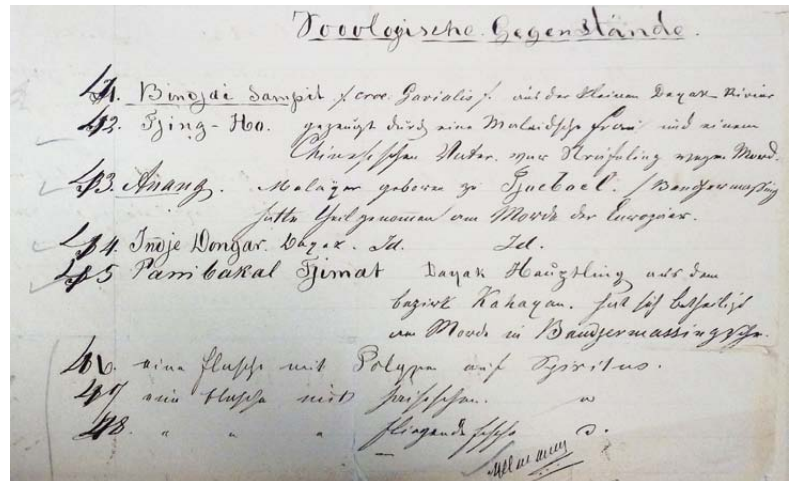 Zoologische Gegenstände.
41. Bindjai Sampit /: croc. Gavialis :/. aus der kleinen Dayak-Rivier
42. Tjing-Ho. gezeugt durch eine Malaiische Frau und einem
Chinesischen Vater. war Sträfling wegen Mord.
43. Anang. Malayer geboren zu /Bandjermassing
hatte theilgenommen am Morde der Europäer.
44. Indje Dongar. Dayak. Id. Id.
45 Pambakal Tjimat Dayak Häuptling aus dem
bezirk Kahayan. hat sich betheiligt
am Morde in
46. eine flasche mit Polypen auf Spiritus.
47 eine flasche mit "
48. " " " fliegende fische